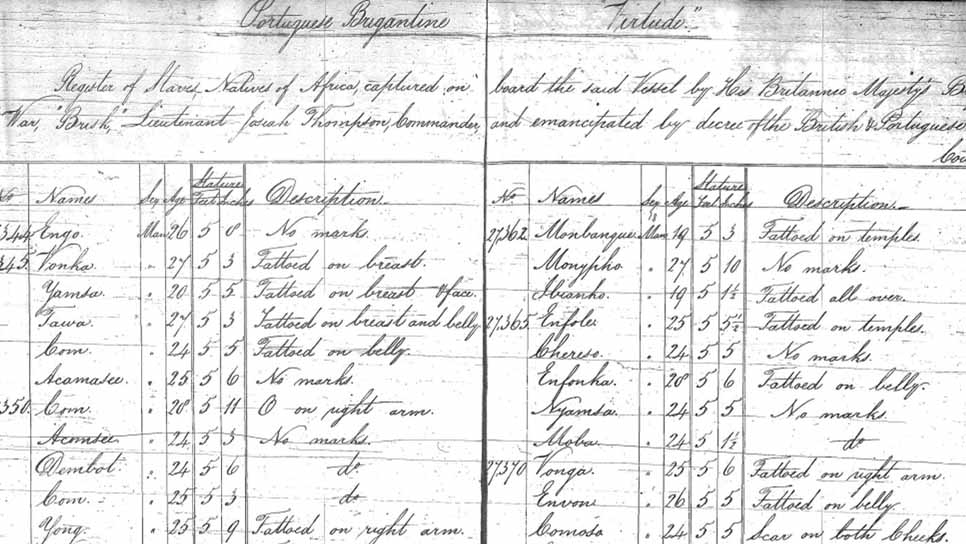 Portuguese Brigantine "Virtude."
Register of Slaves Natives of Africa, captured on board the said Vessel by His Britannic Majesty's
War, "Brisk," Lieutenant Josiah Thompson, Commander, and emancipated by decree of the British & Portuguese
Cou
No Names Sex Age Stature Feet Inches Description.
344 Engo. Man 26 5 0 No marks.
345. Vonka. " 27 5 3 Tattoed on breast.
Yamsa. " 20 5 5 Tattoed on breast & face.
Tawa. " 27 5 3 Tattoed on breast and belly.
Com. " 24 5 5 Tattoed on belly.
Acamasee. " 25 5 6 No marks.
350. Com. " 28 5 11 O on right arm.
Acumsee. " 24 5 3 No marks.
Dembot. " 24 5 6 do
Com. " 25 5 3 do
Yong. " 25 5 9 Tattoed on right arm.
No Names Sex Age Stature Feet Inches Description.
27,362 Monbanque. Man 19 5 3 Tattoed on temples.
Monypho. " 27 5 10 No marks.
" 19 5 1½ Tattoed all over.
27,365. Enfole. " 25 5 5½ Tattoed on temples.
Chereso. " 24 5 5 No marks.
Enfonka. " 28 5 6 Tattoed on belly.
Nyamsa. " 24 5 5 No marks.
Moba. " 24 5 1½ do
27,370 Vonga. " 25 5 6 Tattoed on right arm.
Envon " 26 5 5 Tattoed on belly.
Comosa " 24 5 5 Scar on both Cheeks.